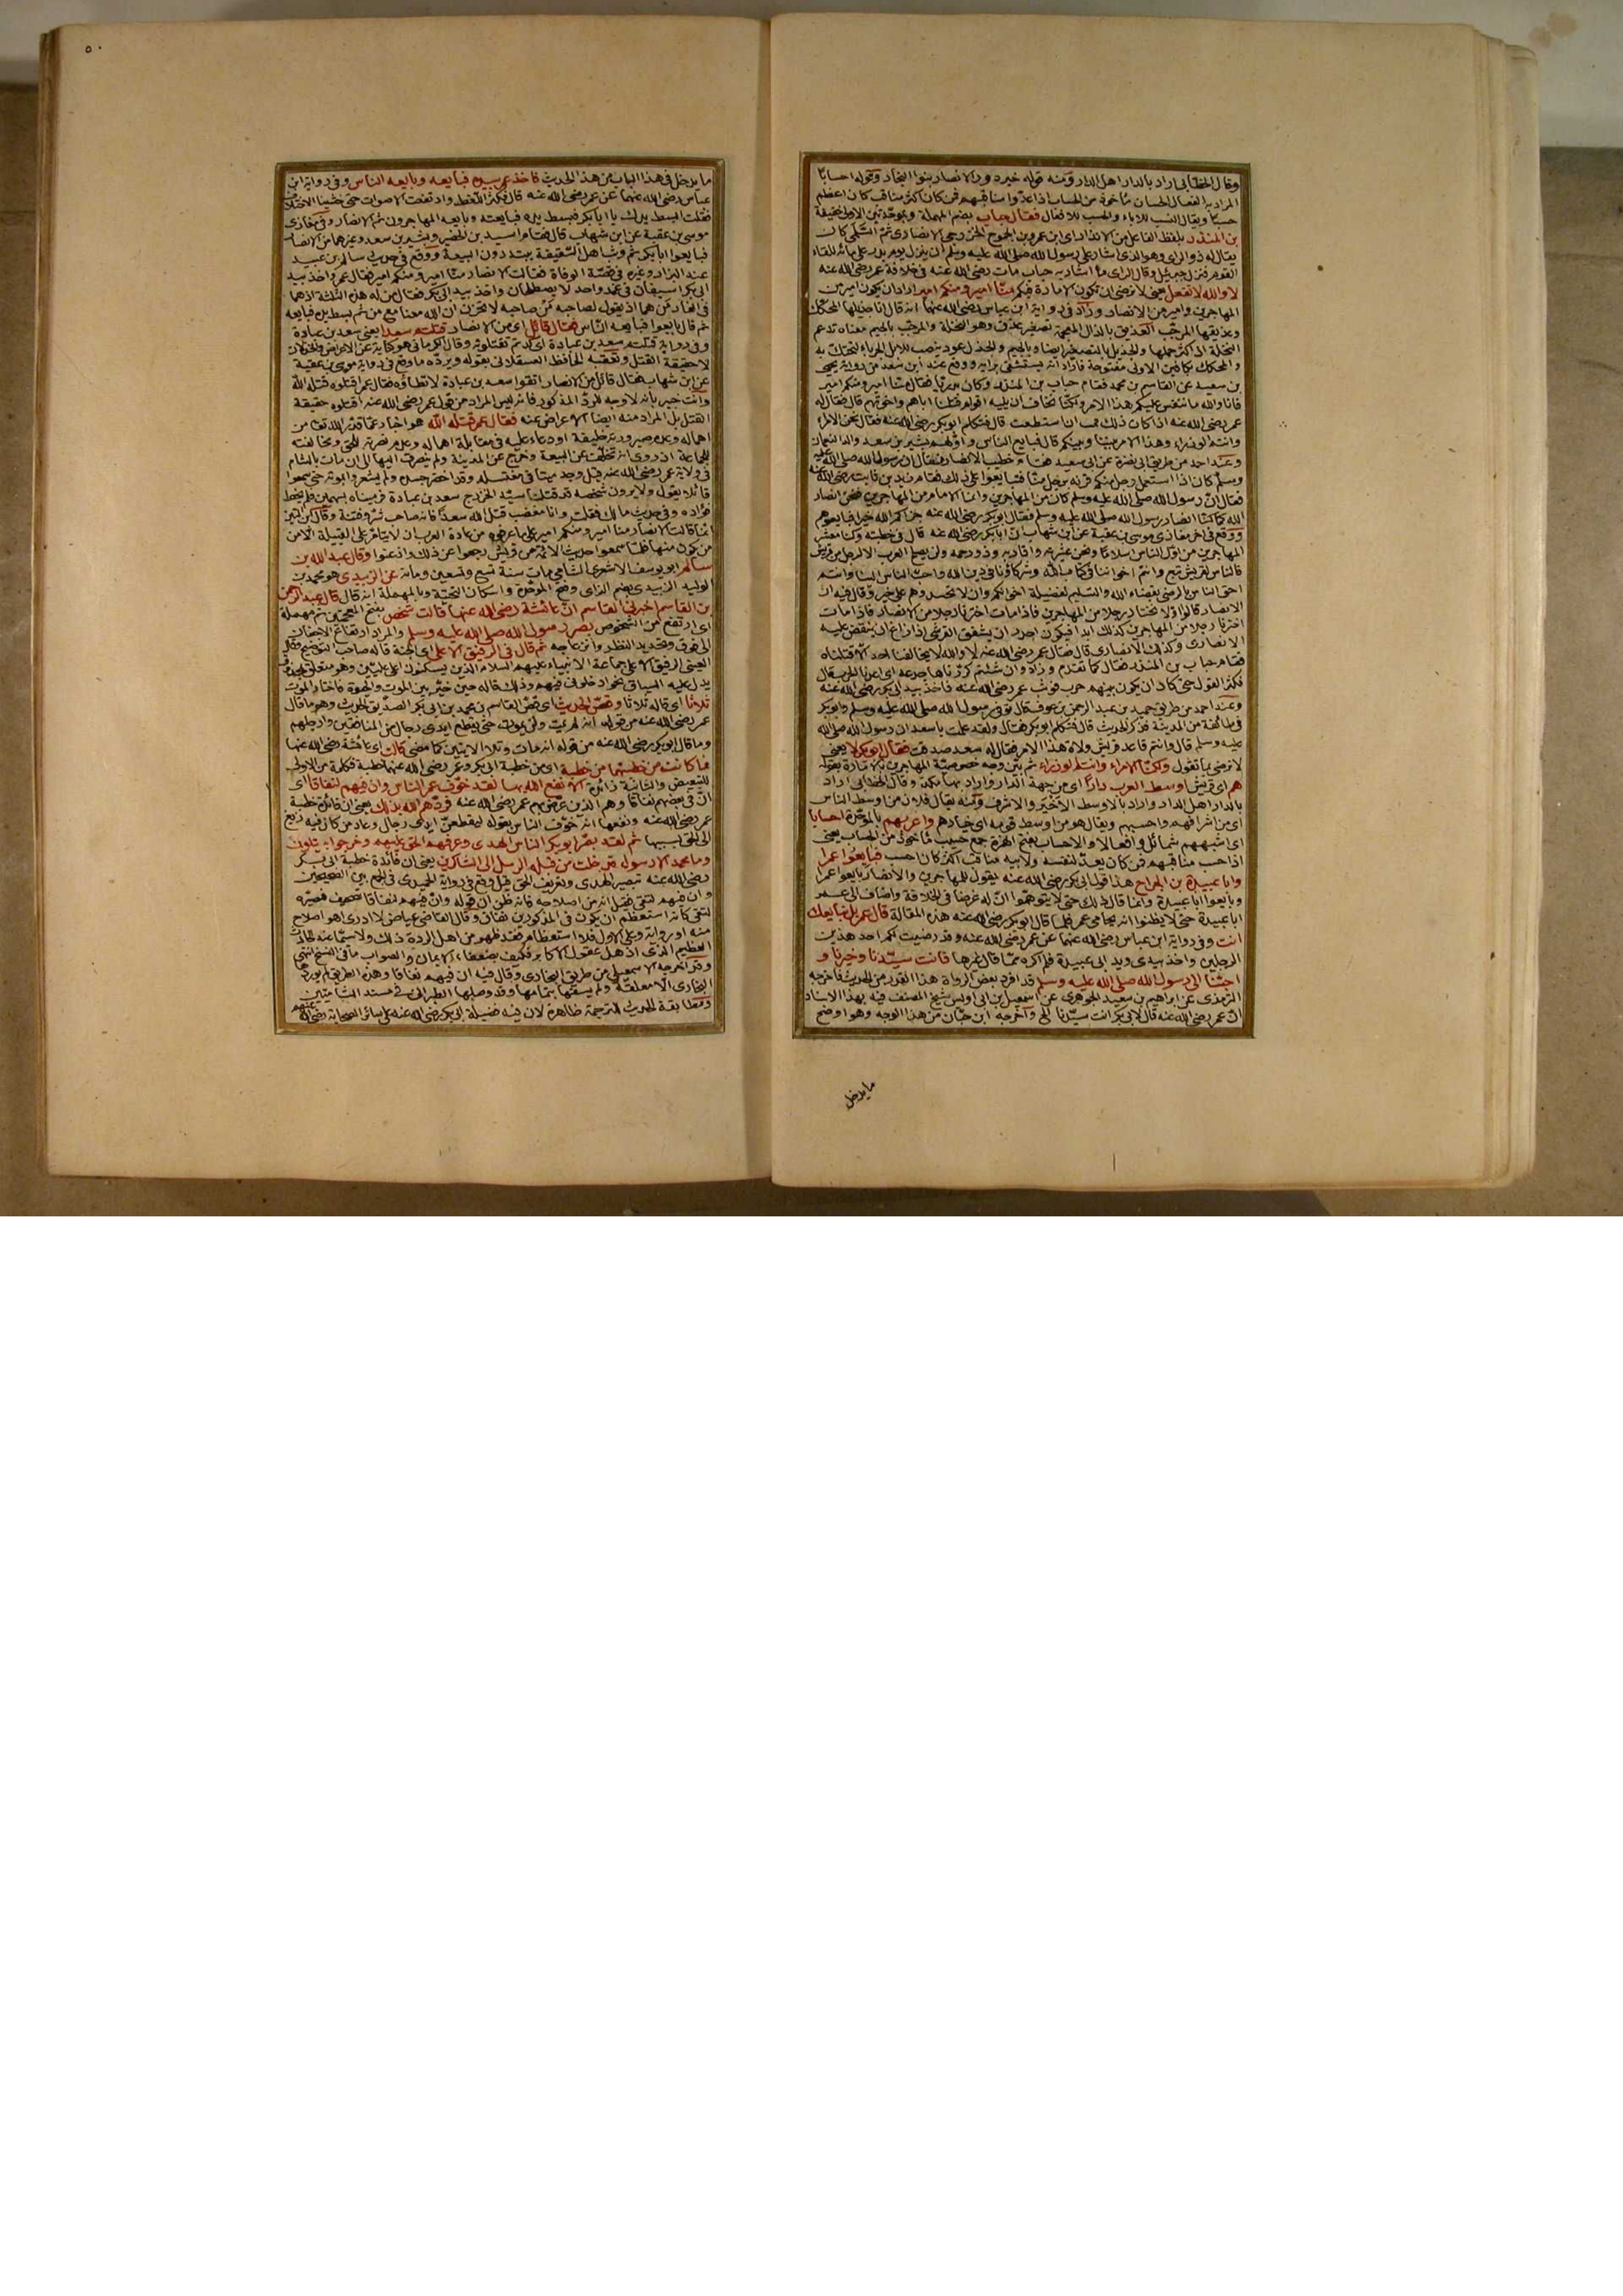 وقال الخطابي اراد بالدار اهل الدار ومنه قوله خير دور الانصار بنوا النجار وقوله احسابا
المراد به الفعال الحسان مأخوذ من الحساب اذا عدوا مناقبهم فمن كان اكثر مناقب كان اعظم
حسبا ويقال النسب للاباء والحسب للافعال فقال حباب بضم المهملة وبموحدتين الاولى خفيفة
بن المنذر بلفظ الفاعل من الانذار اي ابن عمرو بن الجموح الخزرجي الانصاري ثم السلمي كان
يقال له ذو الراي وهو الذي اشار على رسول الله صلى الله عليه وسلم ان ينزل يوم بدر على مائه للقاء
القوم فنزل جبريل وقال الراي ما اشار به حباب مات رضي الله عنه في خلافة عمر رضي الله عنه
لا والله لا نفعل يعني لا نرضى ان تكون الامارة فيكم منا امير ومنكم امير اراد ان يكون امير من
المهاجرين وامير من الانصار وزاد في رواية ابن عباس رضي الله عنهما انه قال انا جذيلها المحكك
وعذيقها المرجب العذيق بالذال المعجمة تصغير عذق وهو النخلة والمرجب بالجيم معناه تدعم
النخلة اذا كثر حملها والجذيل بالتصغير ايضا وبالجيم والجذل عود ينصب للابل الجرباء لتحتك به
والمحكك بكافين الاولى مفتوحة فاراد انه يستشفى برايه ووقع عند ابن سعد من رواية يحيى
بن سعيد عن القاسم بن محمد فقام حباب بن المنذر وكان بدريا فقال منا امير ومنكم امير
فانا والله ما ننفس عليكم هذا الامر ولكنا نخاف ان يليه اقوام قتلنا اباهم واخوتهم قال فقال له
عمر رضي الله عنه اذا كان ذلك فمت ان استطعت قال فتكلم ابو بكر رضي الله عنه فقال نحن الامراء
وانتم الوزراء وهذا الامر بيننا وبينكم قال فبايع الناس واولهم بشير بن سعد والد النعمان
وعند احمد من طريق ابي نضرة عن ابي سعيد فقام خطيب الانصار فقال ان رسول الله صلى الله عليه
وسلم كان اذا استعمل رجلا منكم قرنه برجل منا فتبايعوا على ذلك فقام زيد بن ثابت رضي الله عنه
فقال ان رسول الله صلى الله عليه وسلم كان من المهاجرين وانما الامام من المهاجرين فنحن انصار
الله كما كنا انصار رسول الله صلى الله عليه وسلم فقال ابو بكر رضي الله عنه جزاكم الله خيرا فبايعوهم
ووقع في اخر مغازي موسى بن عقبة عن ابن شهاب ان ابا بكر رضي الله عنه قال في خطبته وكنا معشر
المهاجرين من اول الناس اسلاما ونحن عشيرته واقاربه وذوو رحمه ولن يصلح العرب الا لرجل من قريش
فالناس لقريش تبع وانتم اخواننا في كتاب الله وشركاؤنا في دين الله واحب الناس الينا وانتم
احق الناس بالرضى بقضاء الله والتسليم لفضيلة اخوانكم وان لا تحسدوهم على خير وقال فيه ان
الانصار قالوا اولا نختار رجلا من المهاجرين فاذا مات اخترنا رجلا من الانصار فاذا مات
اخترنا رجلا من المهاجرين كذلك ابدا فيكون اجدر ان يشفق القرشي اذا زاغ ان ينقض عليه
الانصاري وكذلك الانصاري قال فقال عمر رضي الله عنه لا والله لا يخالفنا احد الا قتلناه
فقام حباب بن المنذر فقال كما تقدم وزاد وان شئتم كررناها جذعة اي اعدنا الحرب قال
فكثر القول حتى كاد ان يكون بينهم حرب فوثب عمر رضي الله عنه فاخذ بيد ابي بكر رضي الله عنه
وعند احمد من طريق حميد بن عبد الرحمن بن عوف قال توفي رسول الله صلى الله عليه وسلم وابو بكر
في طائفة من المدينة فذكر الحديث قال فتكلم ابو بكر فقال ولقد علمت يا سعد ان رسول الله صلى الله
عليه وسلم قال وانتم قاعد قريش ولاة هذا الامر فقال له سعد صدقت فقال ابو بكر لا يعني
لا نرضى بما تقول ولكنا الامراء وانتم الوزراء ثم بين وجه خصوصية المهاجرين بالامارة بقوله
هم اي قريش اوسط العرب دارا اي من جهة الدار واراد بها مكة وقال الخطابي اراد
بالدار اهل الدار واراد بالاوسط الاخير والاشرف ومنه يقال فلان من اوسط الناس
اي من اشرافهم واحسبهم ويقال هو من اوسط قومه اي خيارهم واعربهم بالموحدة احسابا
اي اشبههم شمائل وافعالا والاحساب بفتح الهمزة جمع حسب مأخوذ من الحساب يعني
اذا حسب مناقبهم فمن كان يعد لنفسه ولابيه مناقب اكثر كان احسب فبايعوا عمر
وابا عبيدة بن الجراح هذا قول ابي بكر رضي الله عنه يقول للمهاجرين والانصار بايعوا عمر
وبايعوا ابا عبيدة وانما قال ذلك حتى لا يتوهموا ان له غرضا في الخلافة واضاف الى عمر
ابا عبيدة حتى لا يظنوا انه يحابي عمر فلما قال ابو بكر رضي الله عنه هذه المقالة قال عمر بل نبايعك
انت وفي رواية ابن عباس رضي الله عنهما عن عمر رضي الله عنه وقد رضيت لكم احد هذين
الرجلين واخذ بيدي ويد ابي عبيدة فلم اكره مما قال غيرها فانت سيدنا وخيرنا و
احبنا الى رسول الله صلى الله عليه وسلم قد افرد بعض الرواة هذا القدر من الحديث فاخرجه
الترمذي عن ابراهيم بن سعيد الجوهري عن اسمعيل بن ابي اويس شيخ المصنف فيه بهذا الاسناد
ان عمر رضي الله عنه قال لابي بكر انت سيدنا الخ واخرجه ابن حبان من هذا الوجه وهو اوضح
ما يدخل
٥٠
ما يدخل في هذا الباب من هذا الحديث فاخذ عمر بيده فبايعه وبايعه الناس وفي رواية ابن
عباس رضي الله عنهما عن عمر رضي الله عنه قال فكثر اللغط وارتفعت الاصوات حتى خشينا الاختلاف
فقلت ابسط يدك يا ابا بكر فبسط يده فبايعته وبايعه المهاجرون ثم الانصار وفي مغازي
موسى بن عقبة عن ابن شهاب قال فقام اسيد بن الحضير وبشير بن سعد وغيرهما من الانصار
فبايعوا ابا بكر ثم وثب اهل السقيفة يبتدرون البيعة ووقع في حديث سالم بن عبيد
عند البزار وغيره في قصة الوفاة فقالت الانصار منا امير ومنكم امير فقال عمر واخذ بيد
ابي بكر اسيفان في غمد واحد لا يصطلحان واخذ بيد ابي بكر فقال من له هذه الثلثة اذ هما
في الغار من هما اذ يقول لصاحبه من صاحبه لا تحزن ان الله معنا مع من ثم بسط يده فبايعه
ثم قال بايعوا فبايعه الناس فقال قائل اي من الانصار قتلتم سعدا يعني سعد بن عبادة
وفي رواية قتلتم سعد بن عبادة اي كدتم تقتلونه وقال الكرماني هو كناية عن الاعراض والخذلان
لا حقيقة القتل وتعقبه الحافظ العسقلاني بقوله ويرده ما وقع في رواية موسى بن عقبة
عن ابن شهاب فقال قائل من الانصار اتقوا سعد بن عبادة لا تطاؤه فقال عمر اقتلوه قتله الله
وانت خبير بانه لا وجه للرد المذكور فانه ليس المراد من قول عمر رضي الله عنه اقتلوه حقيقة
القتل بل المراد منه ايضا الاعراض عنه فقال عمر قتله الله هو اخبار عما قدر الله تعالى من
اهماله وعدم صيرورته خليفة او دعاء عليه في مقابلة اهماله وعدم نصرته للحق ومخالفته
للجماعة اذ روي انه تخلف عن البيعة وخرج عن المدينة ولم ينصرف اليها الى ان مات بالشام
في ولاية عمر رضي الله عنه قيل وجد ميتا في مغتسله وقد اخضر جسده ولم يشعروا بموته حتى سمعوا
قائلا يقول ولا يرون شخصه قد قتلنا سيد الخزرج سعد بن عبادة فرميناه بسهمين فلم يخط
فؤاده وفي حديث مالك فقلت وانا مغضب قتل الله سعدا فانه صاحب شر وفتنة وقال ابن التين
انما قالت الانصار منا امير ومنكم امير على ما عرفوه من عادة العرب ان لا يتأمر على القبيلة الا من
يكون منها فلما سمعوا حديث الائمة من قريش رجعوا عن ذلك واذعنوا وقال عبد الله بن
سالم ابو يوسف الاشعري الشامي مات سنة تسع وتسعين ومائة عن الزبيدي هو محمد بن
الوليد الزبيدي بضم الزاي وفتح الموحدة واسكان التحتية وبالمهملة انه قال قال عبد الرحمن
بن القاسم اخبرني القاسم ان عائشة رضي الله عنها قالت شخص بفتح المعجمتين ثم مهملة
اي ارتفع من الشخوص بصر رسول الله صلى الله عليه وسلم والمراد ارتفاع الاجفان
الى فوق وتحديد النظر وانزعاجه ثم قال في الرفيق الاعلى اي الجنة قاله صاحب التوضيح وقال
العيني الرفيق الاعلى جماعة الانبياء عليهم السلام الذين يسكنون اعلى عليين وهو متعلق بمحذوف
يدل عليه السياق نحو ادخلوني فيهم وذلك قاله حين خير بين الموت والحيوة فاختار الموت
ثلاثا اي قاله ثلاثا وقص الحديث اي قص القاسم بن محمد بن ابي بكر الصديق الحديث وهو ما قال
عمر رضي الله عنه من قوله انه لم يمت ولن يموت حتى يقطع ايدي رجال من المنافقين وارجلهم
وما قال ابو بكر رضي الله عنه من قوله انه مات وتلا الايتين كما مضى قالت اي عائشة رضي الله عنها
فما كانت من خطبتهما من خطبة اي من خطبة ابي بكر وعمر رضي الله عنهما خطبة فكلمة من الاولى
للتبعيض والثانية زائدة الا نفع الله بها لقد خوف عمر الناس وان فيهم لنفاقا اي
ان في بعضهم نفاقا وهم الذين عرض بهم عمر رضي الله عنه فردهم الله بذلك يعني ان فائدة خطبة
عمر رضي الله عنه ونفعها انه خوف الناس بقوله ليقطعن ايدي رجال وعاد من كان فيه زيغ
الى الحق بسببها ثم لقد بصر ابو بكر الناس الهدى وعرفهم الحق عليهم وخرجوا به يتلون
وما محمد الا رسول قد خلت من قبله الرسل الى الشاكرين يعني ان فائدة خطبة ابي بكر
رضي الله عنه تبصير الهدى وتعريف الحق قيل وقع في رواية الحميدي في الجمع بين الصحيحين
وان فيهم لتقى فقيل انه من اصلاحه فانه ظن ان قوله وان فيهم لنفاقا تصحيف فصيره
لتقى كانه استعظم ان يكون في المذكورين نفاق وقال القاضي عياض لا ادري اهو اصلاح
منه او رواية وعلى الاول فلا استعظام فقد ظهر من اهل الردة ذلك ولا سيما عند الحادث
العظيم الذي اذهل عقول الاكابر فكيف بضعفاء الايمان والصواب ما في النسخ انتهى
وقد اخرجه الاسمعيلي من طريق البخاري وقال فيه ان فيهم لنفاقا وهذه الطريق لم يوردها
البخاري الا معلقة ولم يسقها بتمامها وقد وصلها الطبراني في مسند الشاميين
ومطابقة الحديث للترجمة ظاهرة لان فيه فضيلة ابي بكر رضي الله عنه على سائر الصحابة رضي الله عنهم